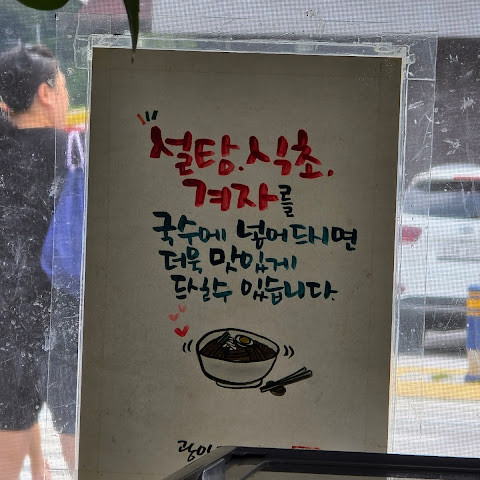 설탕.식초.
겨자를
국수에 넣어드시면
더욱 맛있게
드실수 있습니다.